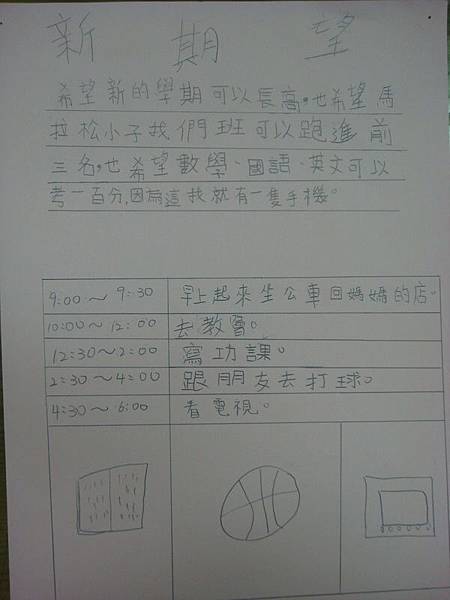 新期望
希望新的學期可以長高。也希望馬
拉松小子找們班可以跑進前
三名。也希望數學、國語、英文可以
考一百分,因為這找就有一隻手機。
9:00～9:30 早上起來坐公車回媽媽的店。
10:00～12:00 去教會。
12:30～2:00 寫功課。
2:30～4:00 跟朋友去打球。
4:30～6:00 看電視。